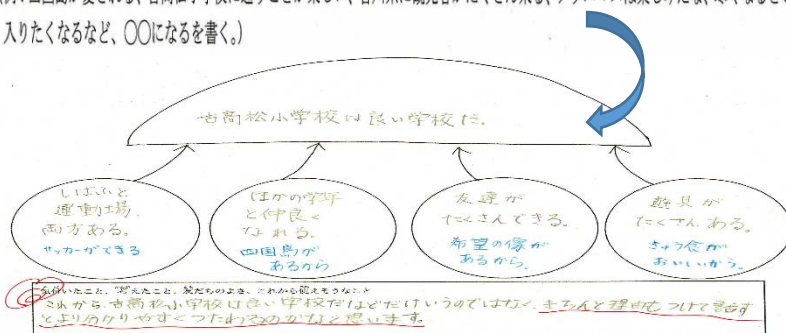 入りたくなるなど、〇〇になるを書く。)
古高松小学校は良い学校だ。
しばふと
運動場
両方ある。
サッカーができる
ほかの学年
と仲良く
なれる。
四国島が
あるから
友達が
たくさんできる。
希望の像が
あるから。
遊具が
たくさんある。
きゅう食が
おいしいから。
気付いたこと、考えたこと、友だちのよさ、これから使えそうなこと
これから古高松小学校は良い学校だなどだけいうのではなく、きちんと理由をつけて話す
とより分かりやすくつたわるのかなと思います。